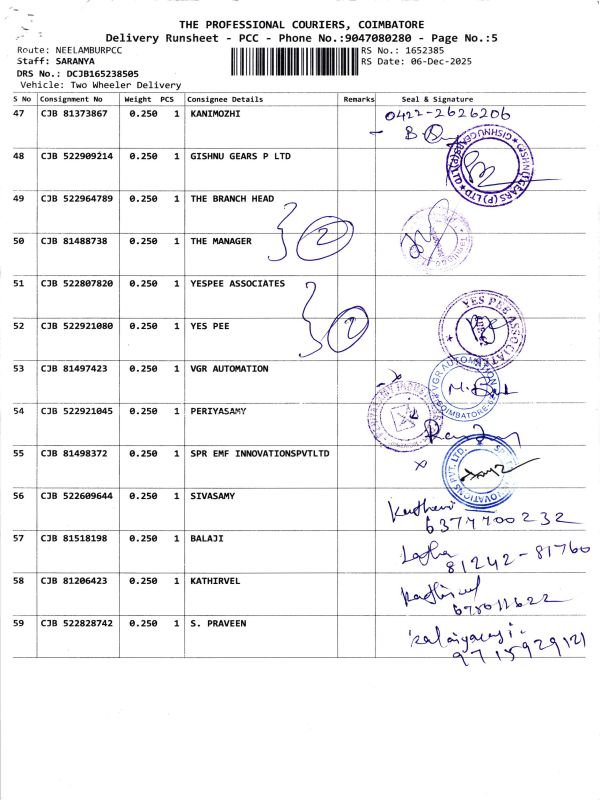 THE PROFESSIONAL COURIERS, COIMBATORE
Delivery Runsheet - PCC - Phone No.:9047080280 - Page No.:5
Route: NEELAMBURPCC RS No.: 1652385
Staff: SARANYA RS Date: 06-Dec-2025
DRS No.: DCJB165238505
Vehicle: Two Wheeler Delivery
S No Consignment No Weight PCS Consignee Details Remarks Seal & Signature
47 CJB 81373867 0.250 1 KANIMOZHI 0422-2626206
48 CJB 522909214 0.250 1 GISHNU GEARS P LTD GISHNU GEARS (P) LTD
49 CJB 522964789 0.250 1 THE BRANCH HEAD
50 CJB 81488738 0.250 1 THE MANAGER 2
51 CJB 522807820 0.250 1 YESPEE ASSOCIATES
52 CJB 522921080 0.250 1 YES PEE 2 YES PEE ASSOCIATES
53 CJB 81497423 0.250 1 VGR AUTOMATION VGR AUTOMATION COIMBATORE
54 CJB 522921045 0.250 1 PERIYASAMY
55 CJB 81498372 0.250 1 SPR EMF INNOVATIONSPVTLTD
56 CJB 522609644 0.250 1 SIVASAMY
6377700232
57 CJB 81518198 0.250 1 BALAJI
81242-81760
58 CJB 81206423 0.250 1 KATHIRVEL Kathirvel
59 CJB 522828742 0.250 1 S. PRAVEEN
9715929121